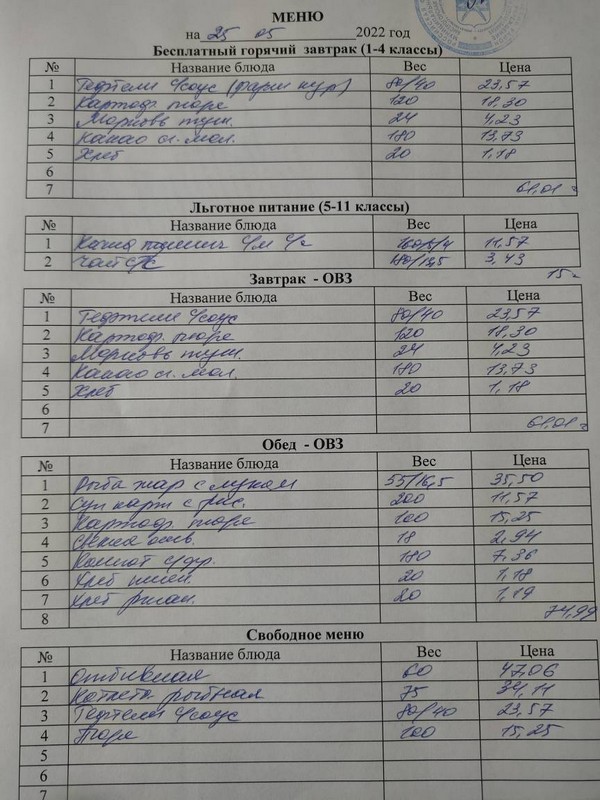 МЕНЮ
на 25 05 2022 год
Бесплатный горячий завтрак (1-4 классы)
№ Название блюда Вес Цена
1 Тефтели с/соус (фарш кур) 80/40 23,57
2 Картоф. пюре 120 18,30
3 Морковь туш. 24 4,23
4 Какао с. мол. 180 13,73
5 Хлеб 20 1,18
6
7 61,01
Льготное питание (5-11 классы)
№ Название блюда Вес Цена
1 Каша 11,57
2 Чай 3,43
15
Завтрак - ОВЗ
№ Название блюда Вес Цена
1 Тефтели с/соус 80/40 23,57
2 Картоф. пюре 120 18,30
3 Морковь туш. 24 4,23
4 Какао с. мол. 180 13,73
5 Хлеб 20 1,18
6
7 61,01
Обед - ОВЗ
№ Название блюда Вес Цена
1 Рыба жар с луком 55/16,5 35,50
2 Суп карт с рис. 200 11,57
3 Картоф. пюре 100 15,25
4 18 2,94
5 Компот с/фр. 180 7,36
6 Хлеб пшен. 20 1,18
7 Хлеб ржан. 20 1,19
8 74,99
Свободное меню
№ Название блюда Вес Цена
1 Отбивная 60 47,06
2 Котлета рыбная 75 34,11
3 Тефтели с/соус 80/40 23,57
4 Пюре 100 15,25
5
6
7